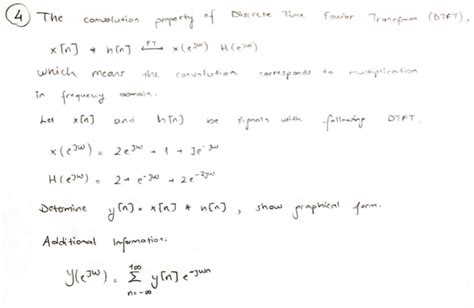 4 The convolution property of Discrete Time Fourier Transform (DTFT),
x[n] * h[n] ⟷FT X(e^jω) H(e^jω)
which means the convolution corresponds to multiplication
in frequency domain.
Let x[n] and h[n] be signals with following DTFT.
X(e^jω) = 2e^jω + 1 + 3e^-jω
H(e^jω) = 2 + e^-jω + 2e^-2jω
Determine y[n] = x[n] * h[n], show graphical form.
Additional Information:
Y(e^jω) = Σ y[n] e^-jωn
+∞
n=-∞